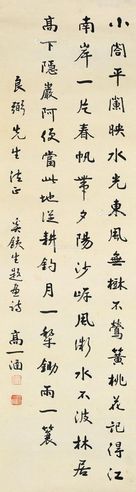 小閣平闌映水光東風無樹不鶯簧桃花記得江
南岸一片春帆帶夕陽沙岸風微水不波林居
高下隱巖阿便當此地從耕釣月一犁鋤雨一簑
良弼先生法正 奚鐵生題畫詩 高一涵